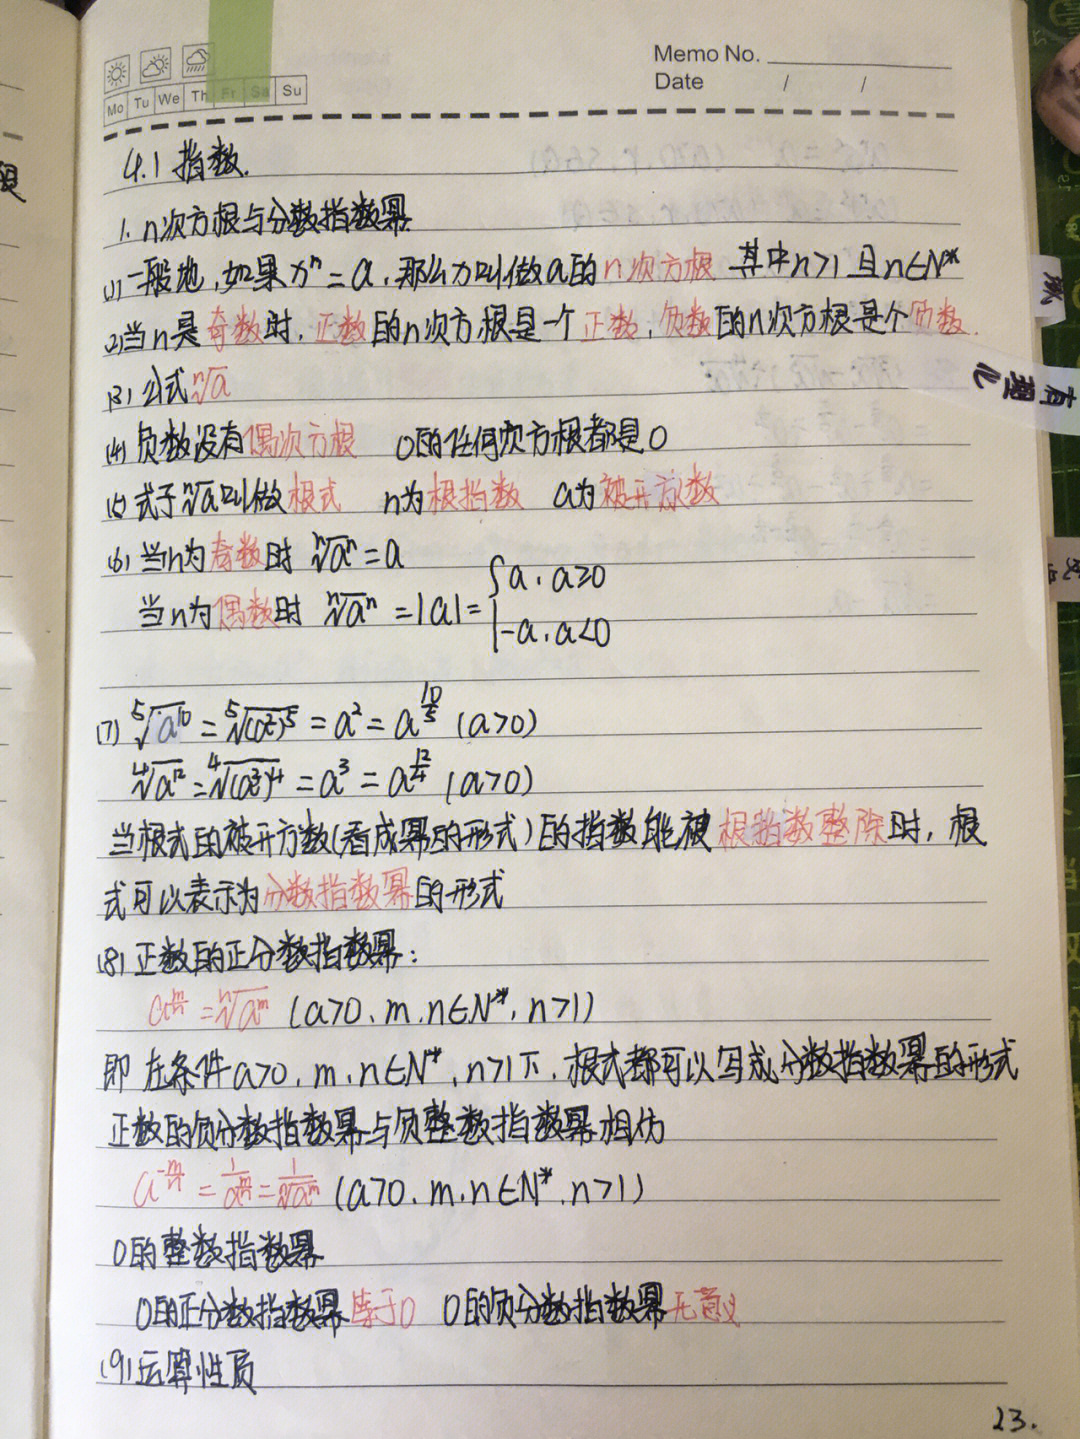 Memo No.
Mo Tu We Th Fr Sa Su
Date / /
4.1 指数.
1. n次方根与分数指数幂
(1) 一般地,如果xⁿ=a,那么x叫做a的n次方根 其中n>1且n∈N*
(2)当n是奇数时,正数的n次方根是一个正数,负数的n次方根是个负数.
(3) 公式ⁿ√a
(4) 负数没有偶次方根 0的任何次方根都是0
(5) 式子ⁿ√a叫做根式 n为根指数 a为被开方数
(6) 当n为奇数时 ⁿ√aⁿ=a
当n为偶数时 ⁿ√aⁿ=|a|={a, a≥0
-a, a<0
(7) ⁵√a¹⁰=⁵√(a²)⁵=a²=a^(10/5) (a>0)
⁴√a¹²=⁴√(a³)⁴=a³=a^(12/4) (a>0)
当根式的被开方数(看成幂的形式)的指数能被根指数整除时,根
式可以表示为分数指数幂的形式
(8) 正数的正分数指数幂:
a^(m/n)=ⁿ√aᵐ (a>0, m,n∈N*, n>1)
即 在条件a>0, m,n∈N*, n>1下,根式都可以写成分数指数幂的形式
正数的负分数指数幂与负整数指数幂相仿
a^(-m/n)=1/a^(m/n)=1/ⁿ√aᵐ (a>0, m,n∈N*, n>1)
0的整数指数幂
0的正分数指数幂等于0 0的负分数指数幂无意义
(9) 运算性质
23.
有理化